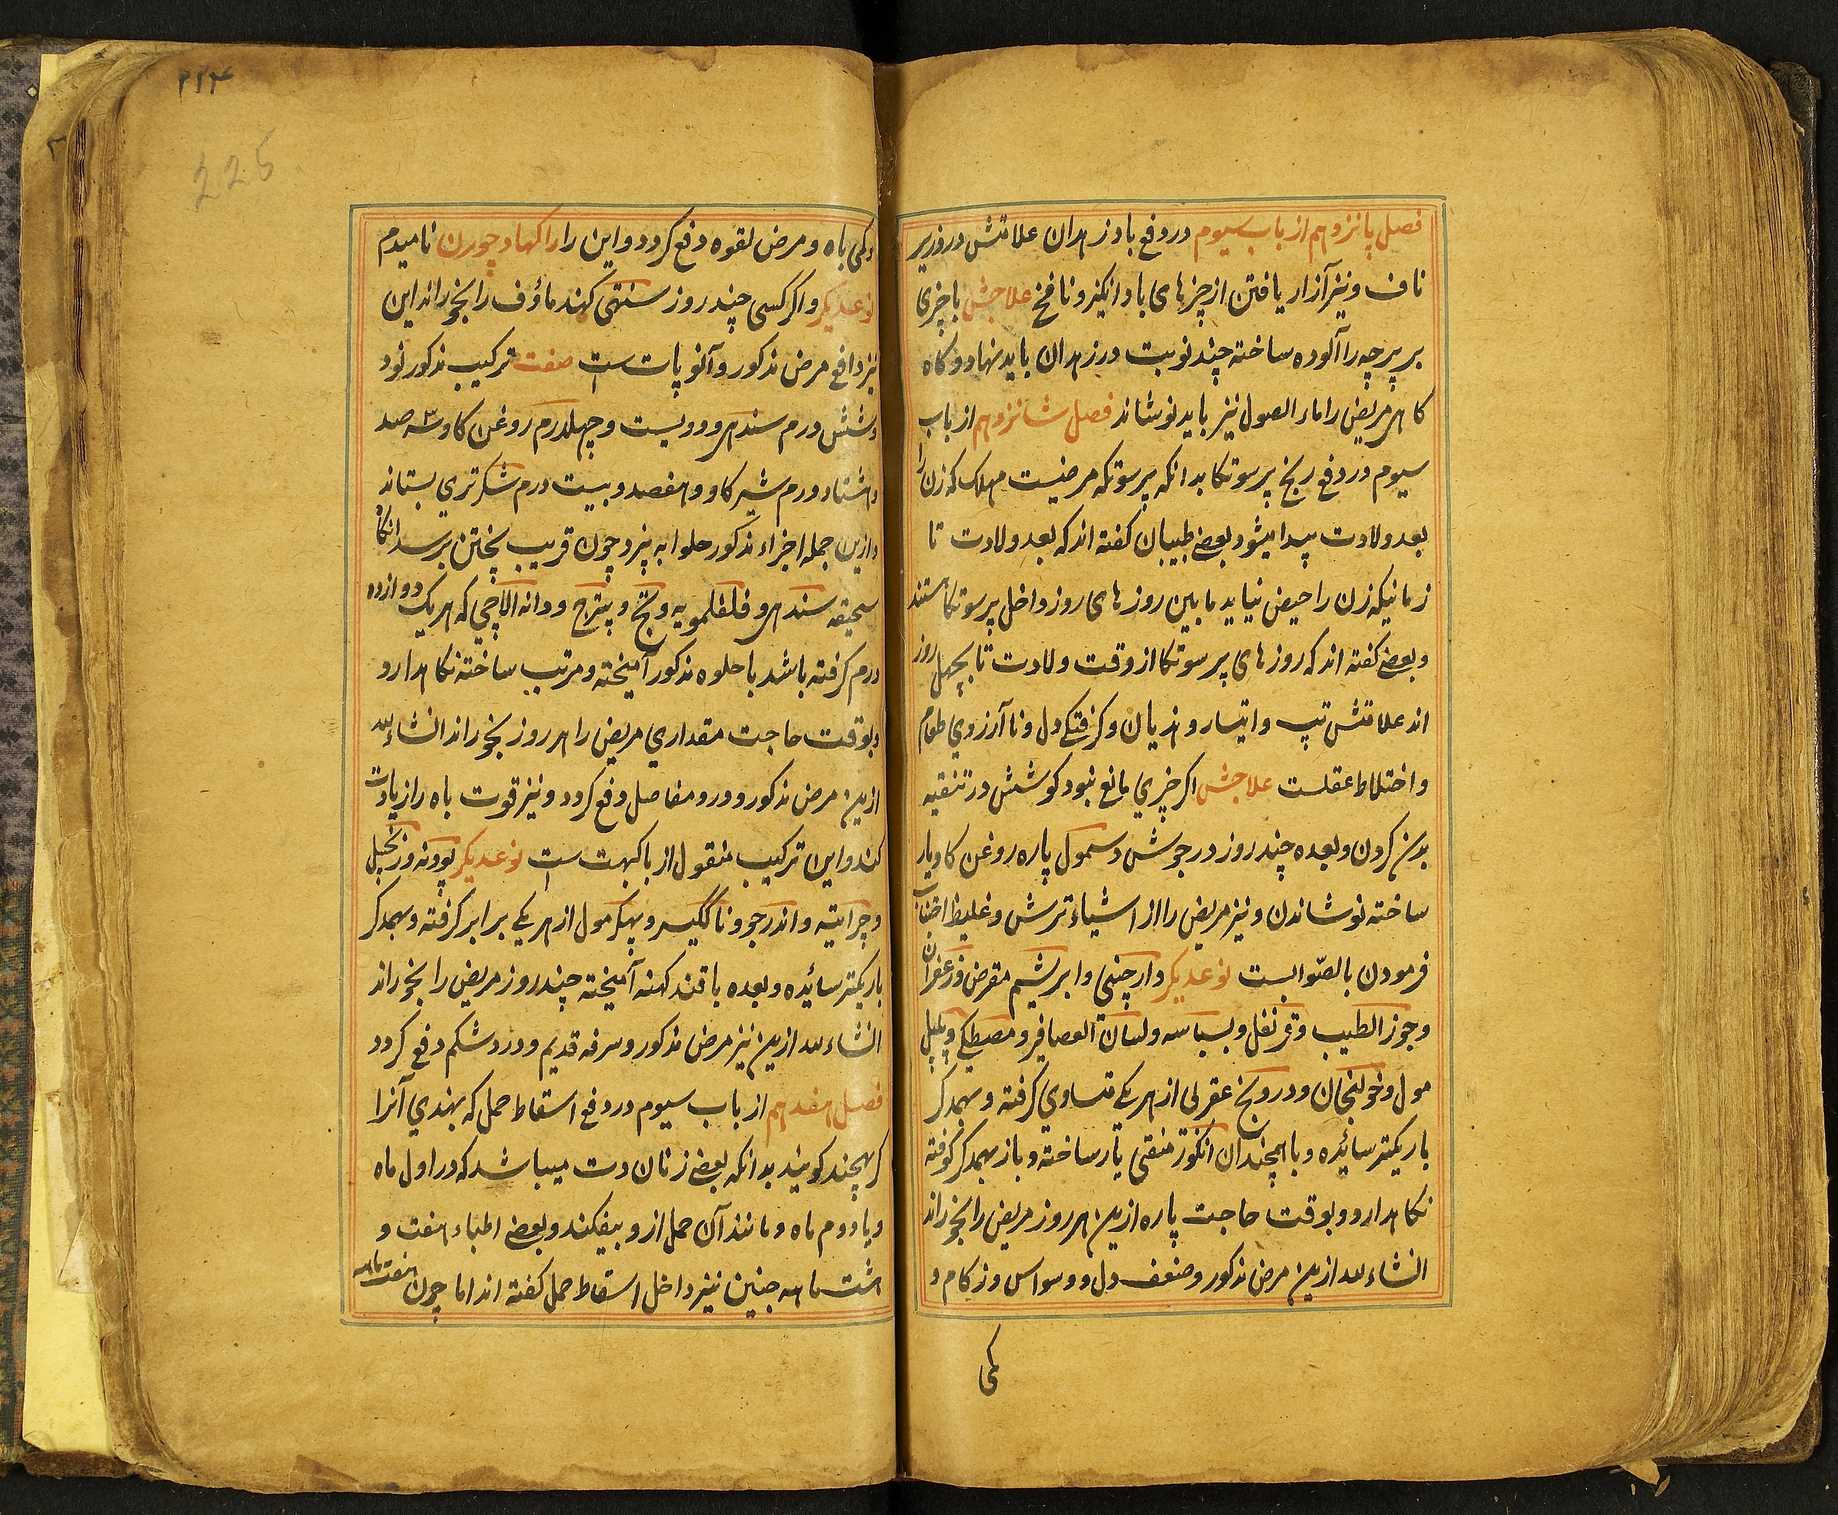 فصل پانزدهم از باب سیوم در دفع باد زهدان علامتش درد زیر
ناف و نیز آزار یافتن از چیزهای باد انگیز و نافخ علاجش با چیزی
بر پرچه را آلوده ساخته چند نوبت در زهدان باید نهاد و کاه
کاهی مریض را ماء الاصول نیز باید نوشاند فصل شانزدهم از باب
سیوم در دفع رنج پرسوتکا بدانکه پرسوتکه مرضیست مهلک که زن را
بعد ولادت پیدا میشود بعضی طبیبان کفته اند که بعد ولادت تا
زمانیکه زن را حیض نیاید مابین روزهای روز داخل پرسوتکا هستند
و بعضی کفته اند که روزهای پرسوتکا از وقت ولادت تا بچهل روز
اند علامتش تپ و اتیسار و هذیان و کرفتکی دل و نا آرزوی طعام
و اختلاط عقلست علاجش اکر چیزی مانع نبود کوشش در تنقیه
بدن کردن و بعده چند روز در جوش دسمول پاره روغن کاو یار
ساخته نوشاندن و نیز مریض را از اشیاء ترش و غلیظ اجتناب
فرمودن بالصوابست نوعدیکر دارچینی و ابریشم مقرض و زعفران
و جوز الطیب و قرنفل و بسباسه و لسان العصافیر و مصطکی و پیپل
مول و خولنجان و درونج عقربی از هر یکی متساوی کرفته و بهمدکر
باریکتر سائیده و با همچندان انکوزه منقی یار ساخته و باز بهمدکر کوفته
نکاهدارد و بوقت حاجت پاره ازین هر روز مریض را بخوراند
انشاء لله ازین مرض مذکور و ضعف دل و وسواس و زکام و
کمی
۲۲۴
225
و کمی باه و مرض لقوه دفع کردد و این را راکهاد چورن نامیدم
نوعدیکر و اکر کسی چند روز سنتهی کهند ماؤف را بخوراند این
نیز دافع مرض مذکور و آنوپات ست صفت ترکیب مذکور نود
و شش درم سندهی و دویست و چهلدرم روغن کاو و سه صد
و اشتاد درم شیر کاو و هفصد و بیست درم شکر تری بستاند
و ازین جمله اجزاء مذکور حلوا به پزد چون قریب پختن برسد انکاه
سحیقه سندهی و فلفلمویه و تج و پترج و دانه الاچی که هر یک دوازده
درم کرفته باشد با حلوه مذکور آمیخته و مرتب ساخته نکاهدارد
و بوقت حاجت مقداری مریض را هر روز بخوراند انشاء لله
ازین مرض مذکور و درد مفاصل دفع کردد و نیز قوت باه را زیادت
کند و این ترکیب منقول از باکبهت ست نوعدیکر پودنه و زنجبیل
و چرایته و اندرجو و ناکیسر و پهکرمول از هر یکی برابر کرفته و بهمدکر
باریکتر سائیده و بعده با قند کهنه آمیخته چند روز مریض را بخوراند
انشاء لله ازین نیز مرض مذکور و سرفه قدیم و درد شکم دفع کردد
فصل هفدهم از باب سیوم در دفع اسقاط حمل که بهندی آنرا
کربهچند کویند بدانکه بعضی زنان دت میباشد که در اول ماه
و یا دوم ماه و مانند آن حمل از و بیفکند و بعضی اطباء هفت و
هشت ماهه جنین نیز داخل اسقاط حمل کفته اند اما چون هفت ماهه